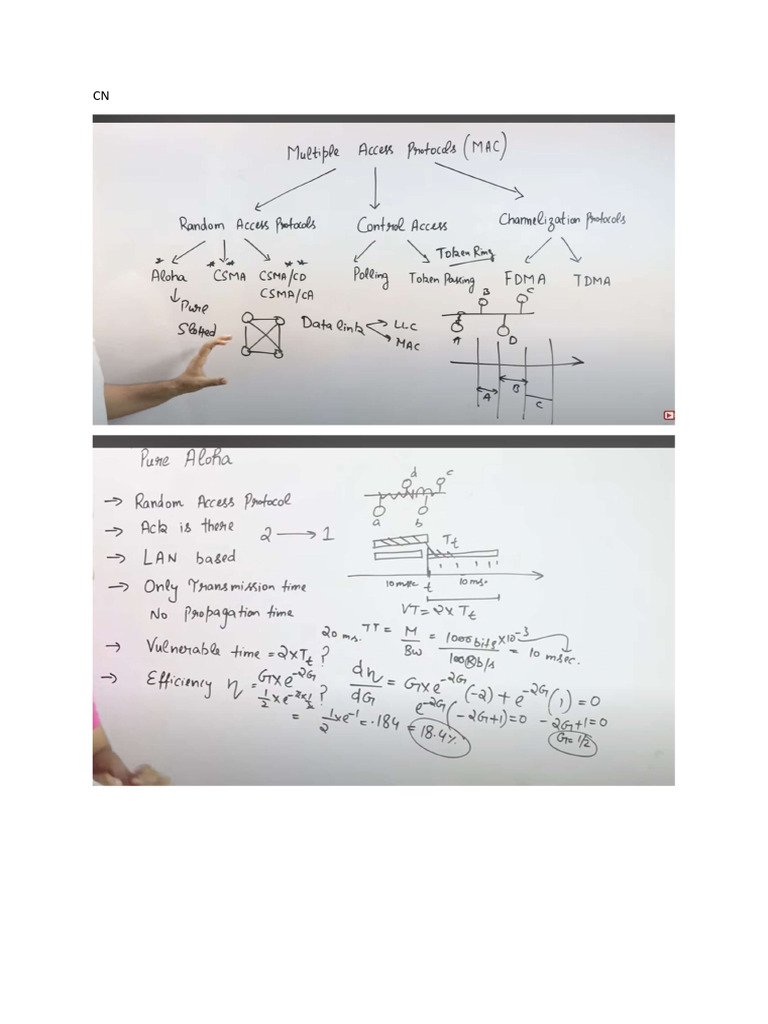 CN
Multiple Access Protocols (MAC)
Random Access Protocols
Control Access
Channelization Protocols
Aloha
CSMA
CSMA/CD
CSMA/CA
Polling
Token Ring
Token Passing
FDMA
TDMA
Pure
Slotted
Data link
LLC
MAC
A
B
C
D
A
B
C
Pure Aloha
→ Random Access Protocol
→ Ack is there
2 → 1
→ LAN based
→ Only Transmission time
No Propagation time
→ Vulnerable time = 2×Tt ?
→ Efficiency η = G×e^-2G ?
= 1/2 × e^-1 = .184 = 18.4%
a
b
c
d
Tt
10 msec
t
10 ms.
VT = 2 × Tt
20 ms.
TT = M/BW = = 10 msec.
dη/dG = G×e^-2G (-2) + e^-2G (1) = 0
e^-2G (-2G+1) = 0
-2G+1=0
G=1/2